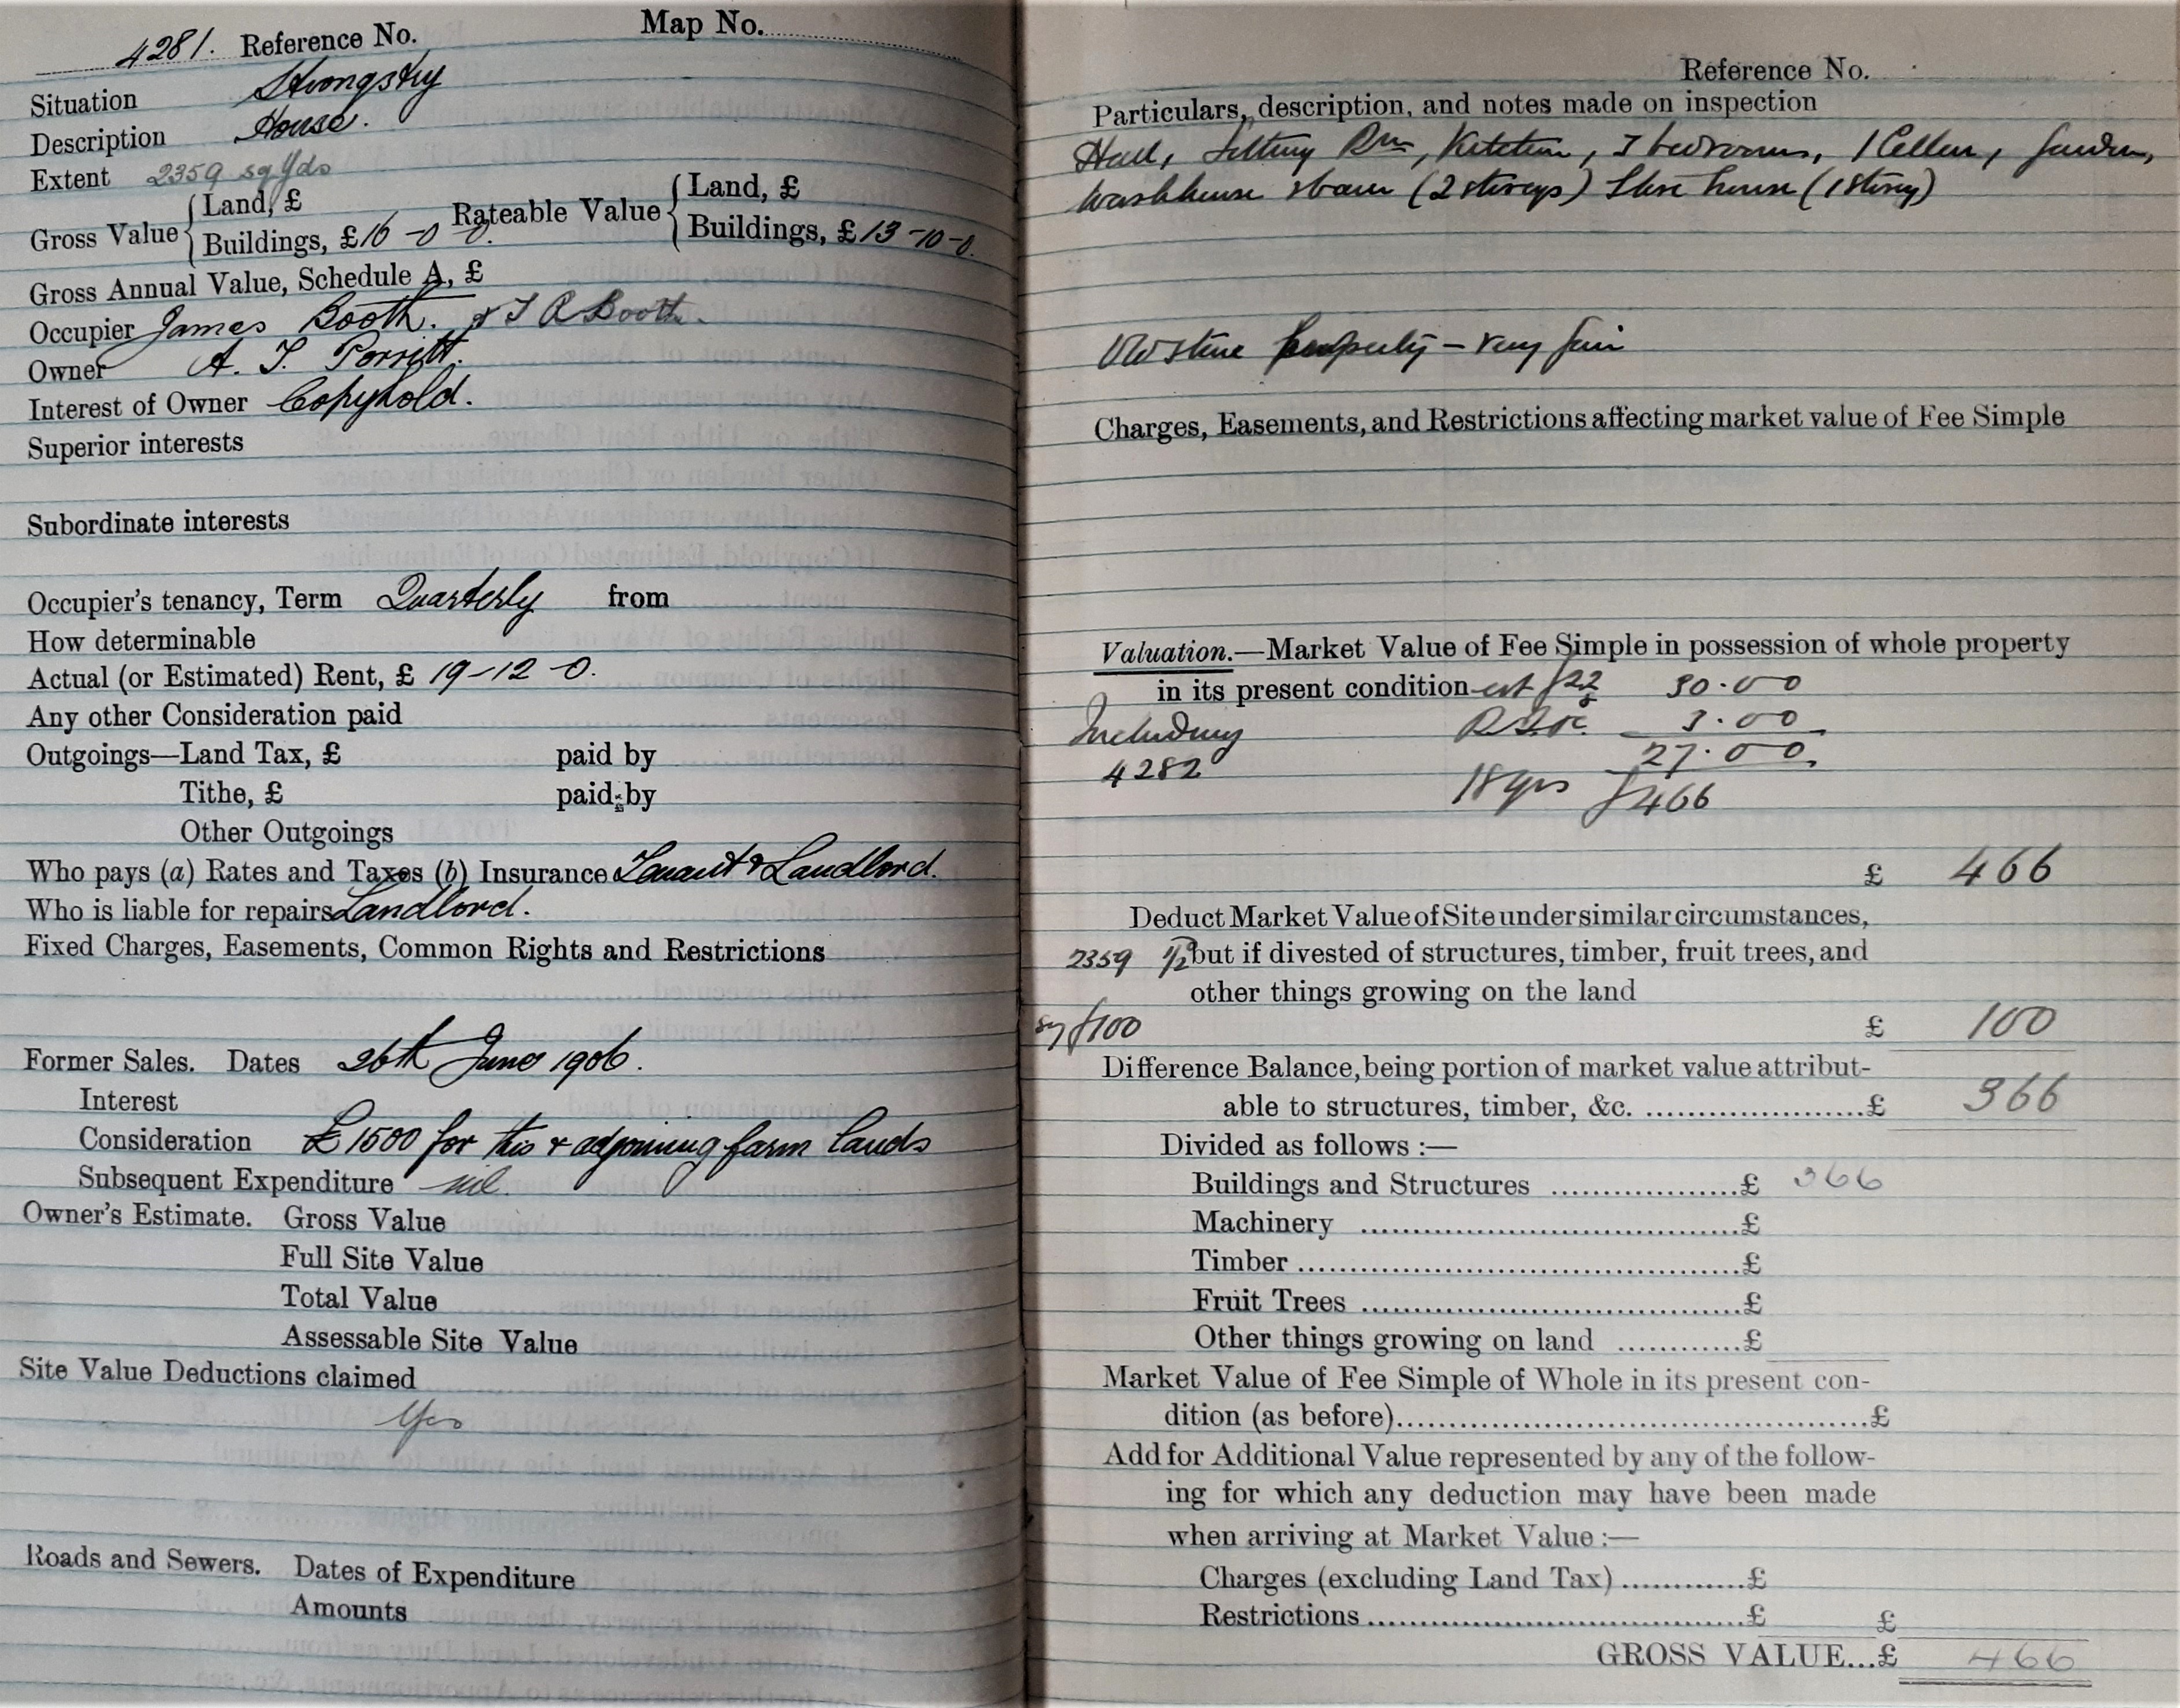 4281. Reference No. Map No.
Situation Strongstry
Description House.
Extent 2359 sq yds
Gross Value { Land, £ Rateable Value { Land, £
Buildings, £16-0-0. Buildings, £13-10-0.
Gross Annual Value, Schedule A, £
Occupier James Booth. & T R Booth.
Owner A. T. Porritt.
Interest of Owner Copyhold.
Superior interests
Subordinate interests
Occupier's tenancy, Term Quarterly from
How determinable
Actual (or Estimated) Rent, £ 19-12-0.
Any other Consideration paid
Outgoings—Land Tax, £ paid by
Tithe, £ paid by
Other Outgoings
Who pays (a) Rates and Taxes (b) Insurance Tenant & Landlord.
Who is liable for repairs Landlord.
Fixed Charges, Easements, Common Rights and Restrictions
Former Sales. Dates 26th June 1906.
Interest
Consideration £1500 for this & adjoining farm lands
Subsequent Expenditure nil.
Owner's Estimate. Gross Value
Full Site Value
Total Value
Assessable Site Value
Site Value Deductions claimed
Yes
Roads and Sewers. Dates of Expenditure
Amounts
Reference No.
Particulars, description, and notes made on inspection
Hall, Sitting Rm, Kitchen, 3 bedrooms, 1 Cellar, Garden,
Washhouse (2 storeys) Store house (1 storey)
Old stone property – very fair
Charges, Easements, and Restrictions affecting market value of Fee Simple
Valuation.—Market Value of Fee Simple in possession of whole property
in its present condition est £22 30.00
Including 3.00
4282 27.00.
18 yrs £466
£ 466
Deduct Market Value of Site under similar circumstances,
2359 1/2 but if divested of structures, timber, fruit trees, and
other things growing on the land
say £100 £ 100
Difference Balance, being portion of market value attribut-
able to structures, timber, &c. .....................£ 366
Divided as follows :—
Buildings and Structures ....................£ 366
Machinery ........................................£
Timber ...............................................£
Fruit Trees ........................................£
Other things growing on land ............£
Market Value of Fee Simple of Whole in its present con-
dition (as before)..................................................£
Add for Additional Value represented by any of the follow-
ing for which any deduction may have been made
when arriving at Market Value :—
Charges (excluding Land Tax) ............£
Restrictions ........................................£ £
GROSS VALUE...£ 466